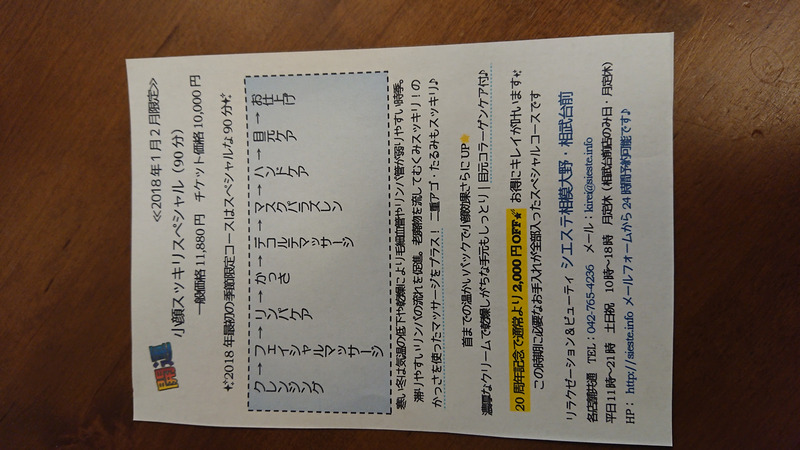 開運
≪2018年1月2月限定≫
小顔スッキリスペシャル（90分）
一般価格11,880円　チケット価格10,000円
2018年最初の季節限定コースはスペシャルな90分
クレンジング→フェイシャルマッサージ→リンパケア→かっさ→デコルテマッサージ→マスクパラスレン→ハンドケア→目元ケア→お仕上げ
寒い冬は気温の低下や乾燥により毛細血管やリンパ管が弱りやすい時季。
滞りやすいリンパの流れを促進。老廃物を流してむくみスッキリ！の
かっさを使ったマッサージをプラス！二重アゴ・たるみもスッキリ♪
首までの温かいパックで小顔効果さらにUP
濃厚なクリームで乾燥しがちな手元もしっとり｜目元コラーゲンケア付♪
20周年記念で通常より2,000円OFF お得にキレイが叶います
この時期に必要なお手入れが全部入ったスペシャルコースです
リラクゼーション＆ビューティ シエステ相模大野・相武台前
各店舗共通　TEL：042-765-4236　メール：
平日11時～21時　土日祝　10時～18時　月定休（相武台前店のみ日・月定休）
HP： http://sieste.info メールフォームから24時間予約可能です♪